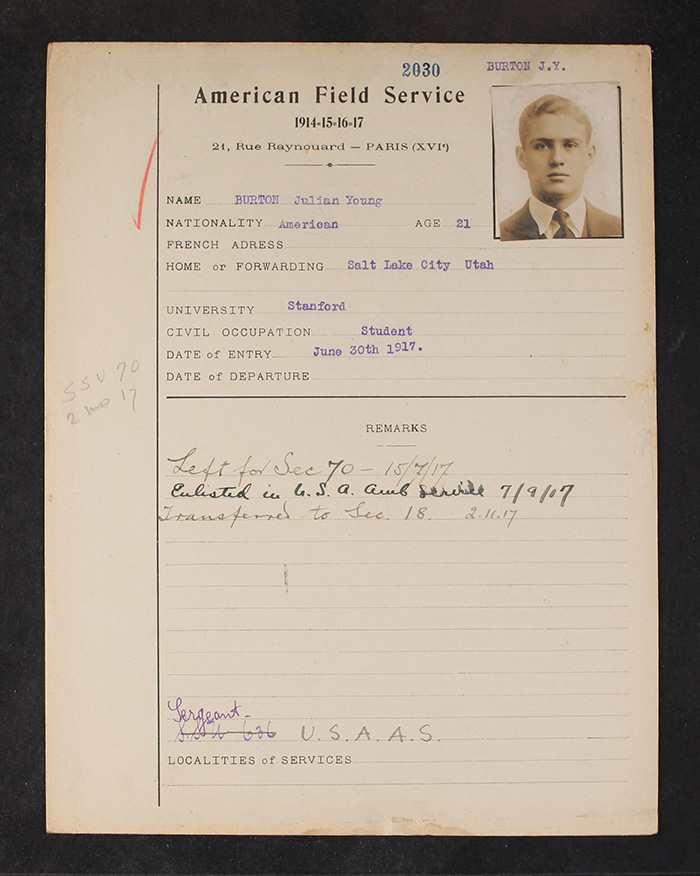 2030 BURTON J.Y.
American Field Service
1914-15-16-17
21, Rue Raynouard — PARIS (XVIe)
NAME BURTON Julian Young
NATIONALITY American AGE 21
FRENCH ADRESS
HOME or FORWARDING Salt Lake City Utah
UNIVERSITY Stanford
CIVIL OCCUPATION Student
DATE of ENTRY June 30th 1917.
DATE of DEPARTURE
SSU 70
2 17
REMARKS
Left for Sec 70 — 15/7/17
Enlisted in U.S.A. Amb Service 7/9/17
Transferred to Sec. 18. 2.11.17
Sergeant.
S.S.U 636 U.S.A.A.S.
LOCALITIES of SERVICES